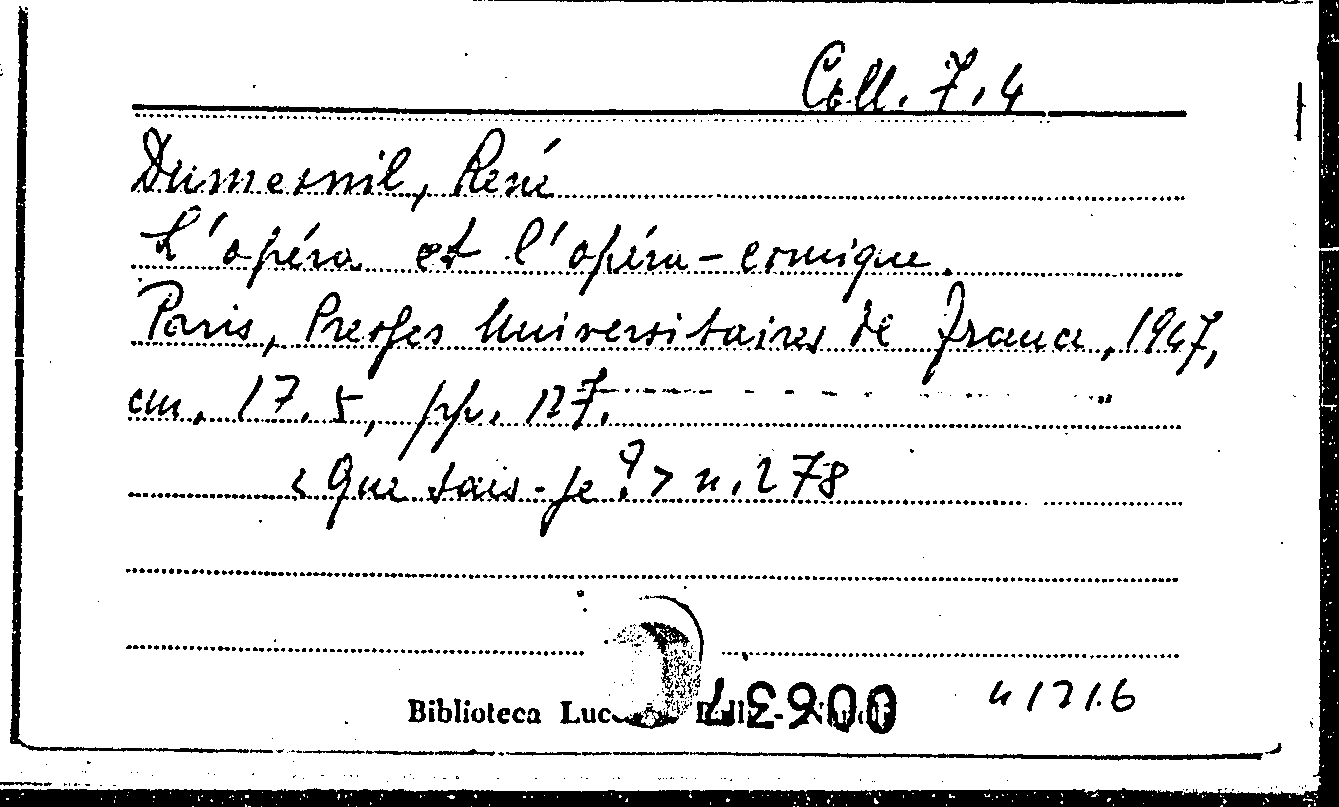 Coll. 7.4
Dumesnil, René
L'opéra et l'opéra-comique.
Paris, Presses Universitaires de France, 1947,
cm. 17.5, pp. 127.
<Que sais-je?> n. 278
Biblioteca